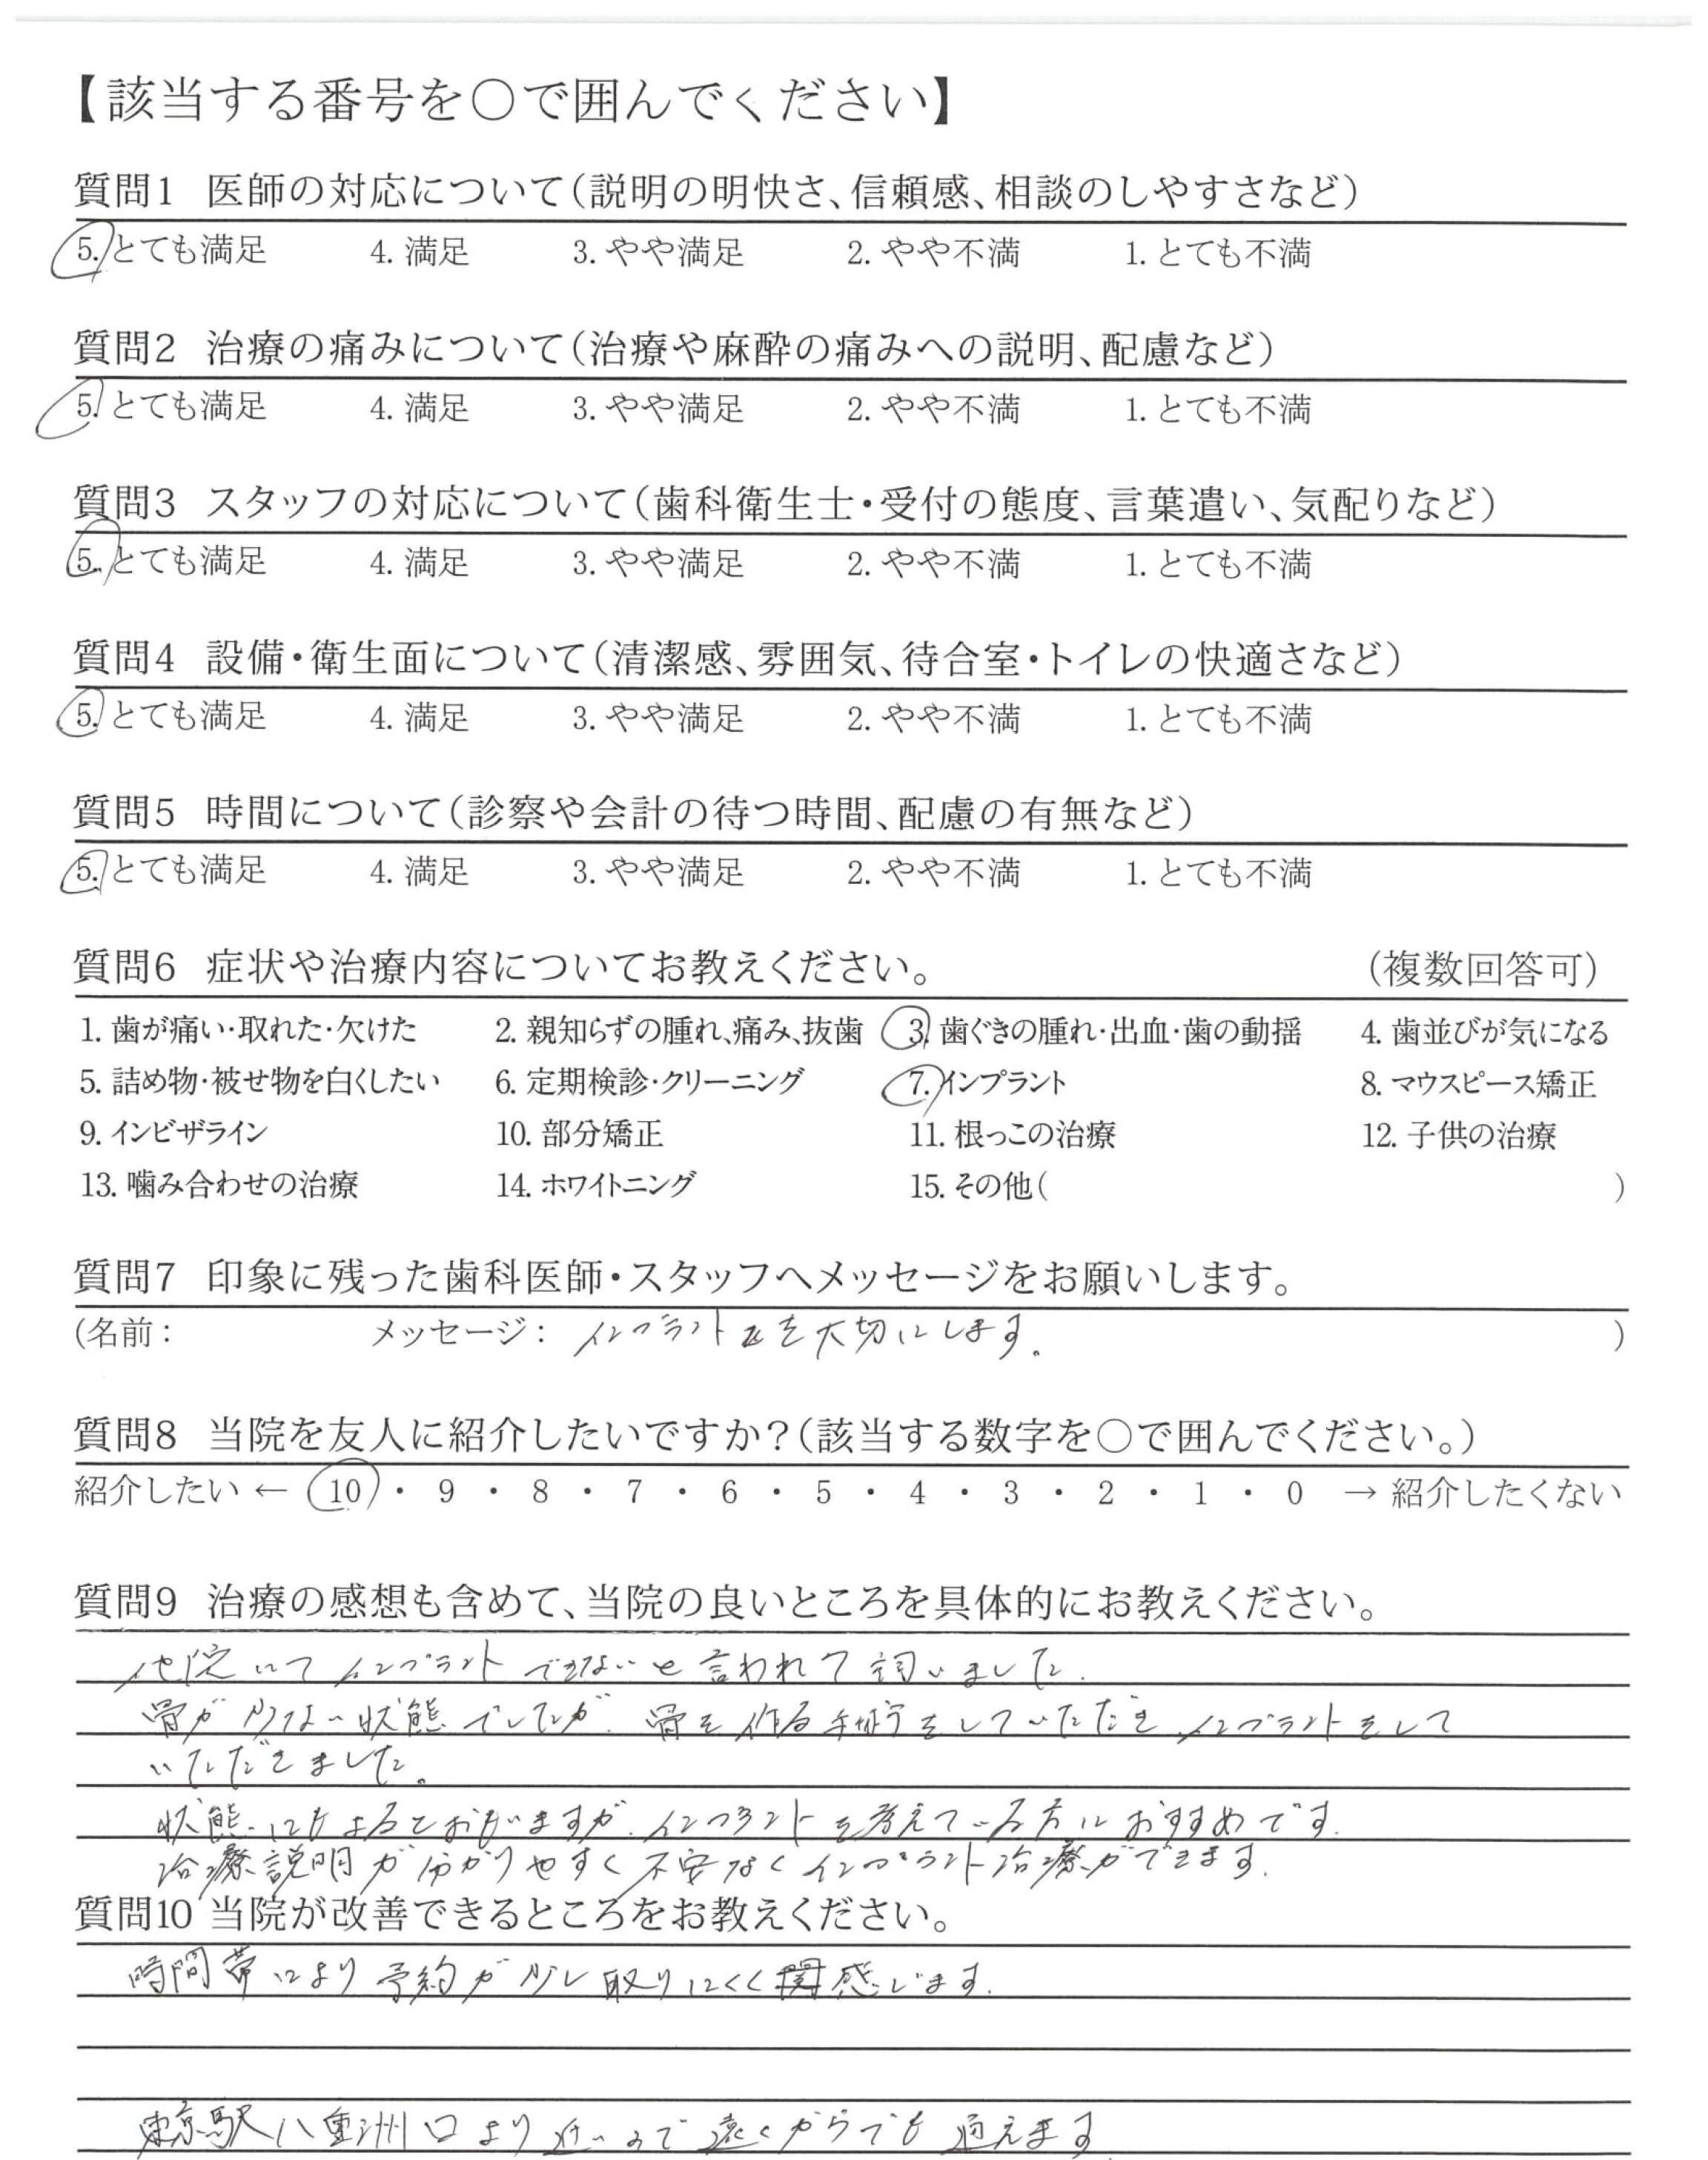 【該当する番号を○で囲んでください】
質問1 医師の対応について(説明の明快さ、信頼感、相談のしやすさなど)
5. とても満足 4. 満足 3. やや満足 2. やや不満 1. とても不満
質問2 治療の痛みについて(治療や麻酔の痛みへの説明、配慮など)
5. とても満足 4. 満足 3. やや満足 2. やや不満 1. とても不満
質問3 スタッフの対応について(歯科衛生士・受付の態度、言葉遣い、気配りなど)
5. とても満足 4. 満足 3. やや満足 2. やや不満 1. とても不満
質問4 設備・衛生面について(清潔感、雰囲気、待合室・トイレの快適さなど)
5. とても満足 4. 満足 3. やや満足 2. やや不満 1. とても不満
質問5 時間について(診察や会計の待つ時間、配慮の有無など)
5. とても満足 4. 満足 3. やや満足 2. やや不満 1. とても不満
質問6 症状や治療内容についてお教えください。 (複数回答可)
1. 歯が痛い・取れた・欠けた 2. 親知らずの腫れ、痛み、抜歯 3. 歯ぐきの腫れ・出血・歯の動揺 4. 歯並びが気になる
5. 詰め物・被せ物を白くしたい 6. 定期検診・クリーニング 7. インプラント 8. マウスピース矯正
9. インビザライン 10. 部分矯正 11. 根っこの治療 12. 子供の治療
13. 噛み合わせの治療 14. ホワイトニング 15. その他( )
質問7 印象に残った歯科医師・スタッフへメッセージをお願いします。
(名前: メッセージ: インプラントを大切にします。 )
質問8 当院を友人に紹介したいですか?(該当する数字を○で囲んでください。)
紹介したい ← 10 ・ 9 ・ 8 ・ 7 ・ 6 ・ 5 ・ 4 ・ 3 ・ 2 ・ 1 ・ 0 → 紹介したくない
質問9 治療の感想も含めて、当院の良いところを具体的にお教えください。
他院にてインプラントできないと言われて伺いました.
骨が少ない状態でしたが、骨を作る手術をしていただき、インプラントをして
いただきました。
状態にもよるとおもいますが、インプラントを考えている方におすすめです.
治療説明が分かりやすく不安なくインプラント治療ができます.
質問10 当院が改善できるところをお教えください。
時間帯により予約が少し取りにくく感じます.
東京駅八重洲口より近いので遠くからでも通えます